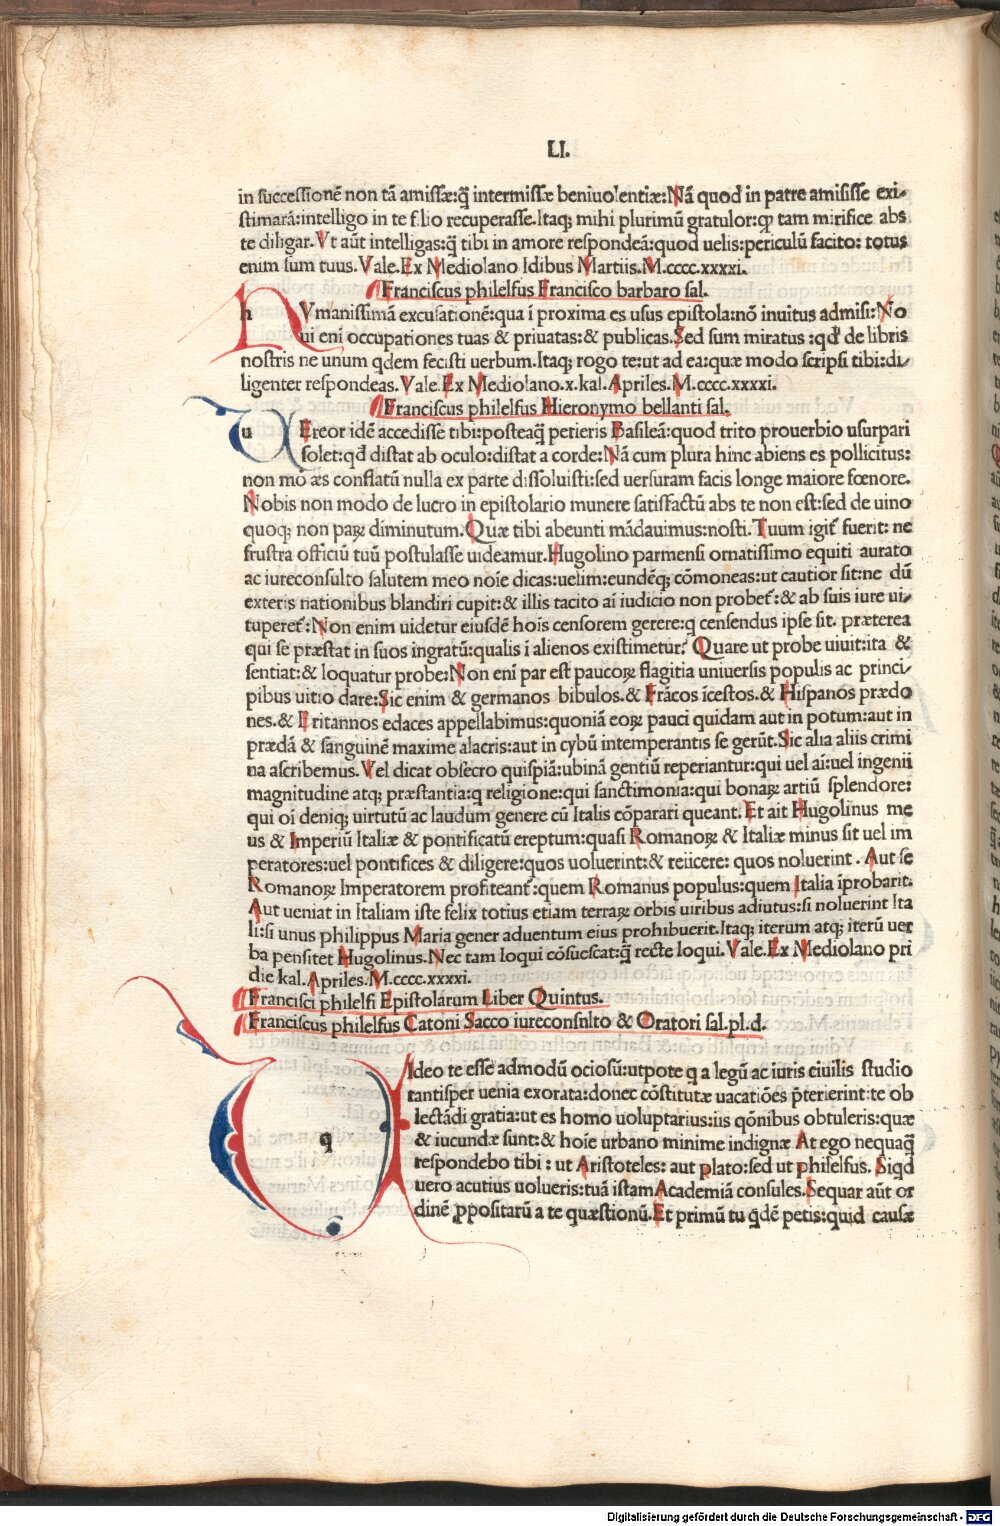 LI.
in successionē non tā amissæ:q̄ intermissæ beniuolentiæ:Nā quod in patre amisisse exi-
stimarā:intelligo in te filio recuperasse.Itaq; mihi plurimū gratulor:ꝙ tam mirifice abs
te diligar.Vt aūt intelligas:q̄ tibi in amore respondeā:quod uelis:periculū facito: totus
enim sum tuus.Vale.Ex Mediolano Idibus Martiis.M.cccc.xxxxi.
Franciscus philelfus Francisco barbaro sal.
h Vmanissimā excusationē:qua ī proxima es usus epistola:nō inuitus admisi:No
ui enī occupationes tuas & priuatas:& publicas.Sed sum miratus :qd' de libris
nostris ne unum qdem fecisti uerbum.Itaq; rogo te:ut ad ea:quæ modo scripsi tibi:di-
ligenter respondeas.Vale.Ex Mediolano.x.kal.Apriles.M.cccc.xxxxi.
Franciscus philelfus Hieronymo bellanti sal.
u Ereor idē accedisse tibi:posteaq̄ petieris Basileā:quod trito prouerbio usurpari
solet:qd̄ distat ab oculo:distat a corde:Nā cum plura hinc abiens es pollicitus:
non mō æs conflatū nulla ex parte dissoluisti:sed uersuram facis longe maiore fœnore.
Nobis non modo de lucro in epistolario munere satisfactū abs te non est:sed de uino
quoq; non paꝝ diminutum.Quæ tibi abeunti mādauimus:nosti.Tuum igit̄ fuerit: ne
frustra officiū tuū postulasse uideamur.Hugolino parmensi ornatissimo equiti aurato
ac iureconsulto salutem meo noīe dicas:uelim:eundēq; cōmoneas:ut cautior sit:ne dū
exteris nationibus blandiri cupit:& illis tacito aī iudicio non probet̄:& ab suis iure ui-
tuperet̄:Non enim uidetur eiusdē hois censorem gerere:q censendus ipse sit. præterea
qui se præstat in suos ingratū:qualis ī alienos existimetur? Quare ut probe uiuit:ita &
sentiat:& loquatur probe:Non enī par est paucoꝝ flagitia uniuersis populis ac princi-
pibus uitio dare:Sic enim & germanos bibulos.& Frācos īcestos.& Hispanos prædo
nes.& Britannos edaces appellabimus:quoniā eoꝝ pauci quidam aut in potum:aut in
prædā & sanguinē maxime alacris:aut in cybū intemperantis se gerūt.Sic alia aliis crimi
na ascribemus.Vel dicat obsecro quispiā:ubinā gentiū reperiantur:qui uel aī:uel ingenii
magnitudine atq; præstantia:q religione:qui sanctimonia:qui bonaꝝ artiū splendore:
qui oī deniq; uirtutū ac laudum genere cū Italis cōparati queant.Et ait Hugolinus me
us & Imperiū Italiæ & pontificatū ereptum:quasi Romanoꝝ & Italiæ minus sit uel im
peratores:uel pontifices & diligere:quos uoluerint:& reiicere: quos noluerint . Aut se
Romanoꝝ Imperatorem profiteant̄:quem Romanus populus:quem Italia īprobarit.
Aut ueniat in Italiam iste felix totius etiam terraꝝ orbis uiribus adiutus:si noluerint Ita
li:si unus philippus Maria gener aduentum eius prohibuerit.Itaq; iterum atq; iterū uer
ba pensitet Hugolinus.Nec tam loqui cōsuescat:q̄ recte loqui.Vale.Ex Mediolano pri
die kal.Apriles.M.cccc.xxxxi.
Francisci philelfi Epistolarum Liber Quintus.
Franciscus philelfus Catoni Sacco iureconsulto & Oratori sal.pl.d.
q Ideo te esse admodū ociosū:utpote q a legū ac iuris ciuilis studio
tantisper uenia exorata:donec cōstitutæ uacatiōes p̄terierint:te ob
lectādi gratia:ut es homo uoluptarius:iis qōnibus obtuleris:quæ
& iucundæ sunt:& hoīe urbano minime indignæ At ego nequaq̄
respondebo tibi : ut Aristoteles: aut plato:sed ut philelfus. Siqd
uero acutius uolueris:tuā istam Academiā consules.Sequar aūt or
dinē ꝓpositarū a te quæstionū.Et primū tu qdē petis:quid causæ
Digitalisierung gefördert durch die Deutsche Forschungsgemeinschaft - DFG